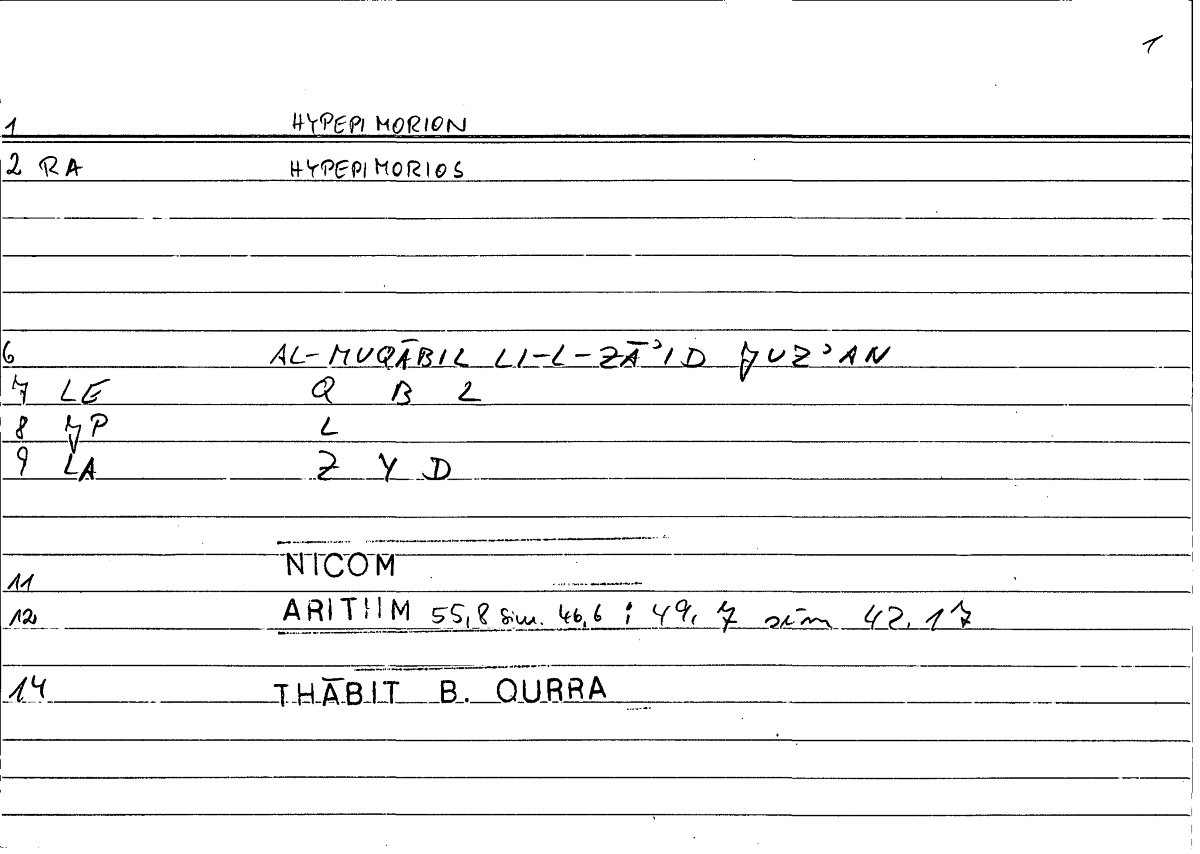 1
1 HYPEPIMORION
2 RA HYPEPIMORIOS
6 AL-MUQĀBIL LI-L-ZĀʾID J̌UZʾAN
7 LE Q B L
8 J̌P L
9 LA Z Y D
11 NICOM
12 ARITHM 55,8 sim. 46,6 ; 49, 7 sim 42, 17
14 THĀBIT B. QURRA